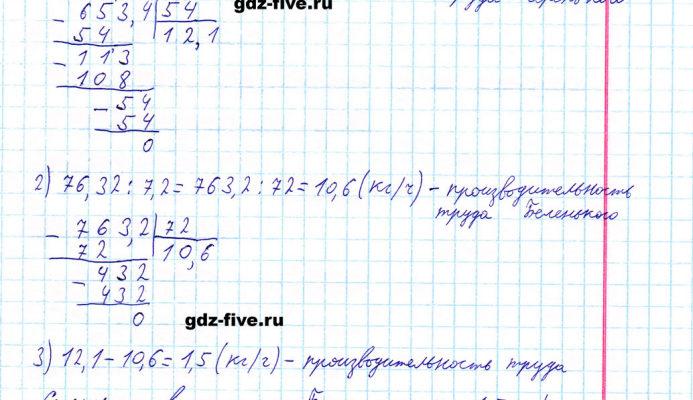 gdz-five.ru
653,4 | 54
54 | 12,1
113
108
54
54
0
2) 76,32 : 7,2 = 763,2 : 72 = 10,6 (кг/ч) – производительность
труда Беленького
763,2 | 72
72 | 10,6
432
432
0
gdz-five.ru
3) 12,1 – 10,6 = 1,5 (кг/ч) – производительность труда